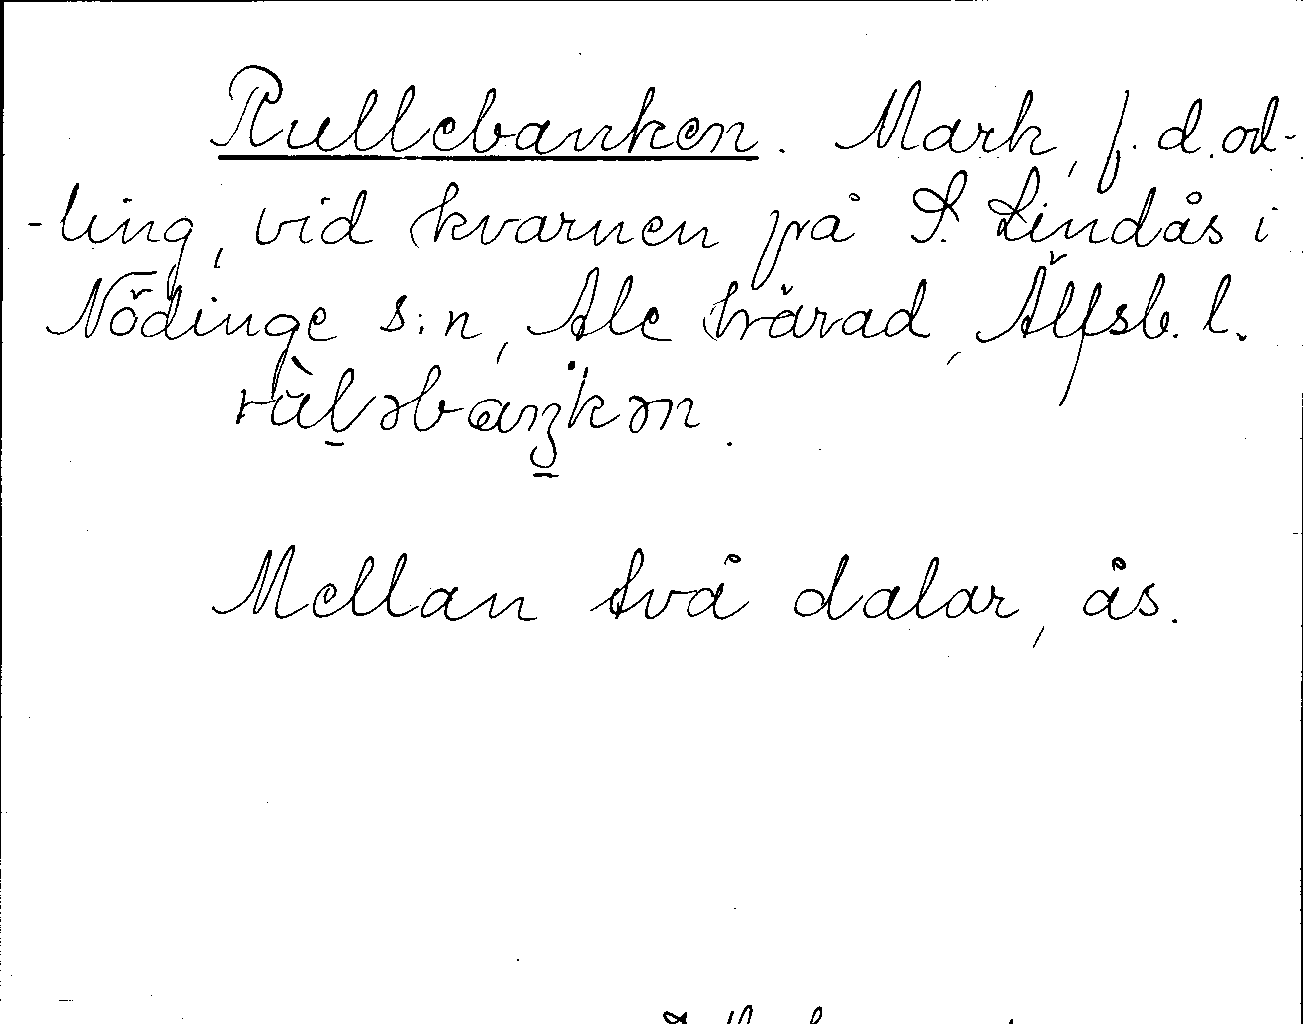 Rullebanken. Mark, f. d. od-
-ling, vid kvarnen på S. Lindås i
Nödinge s:n, Ale härad, Älfsb. l.
Mellan två dalar, ås.